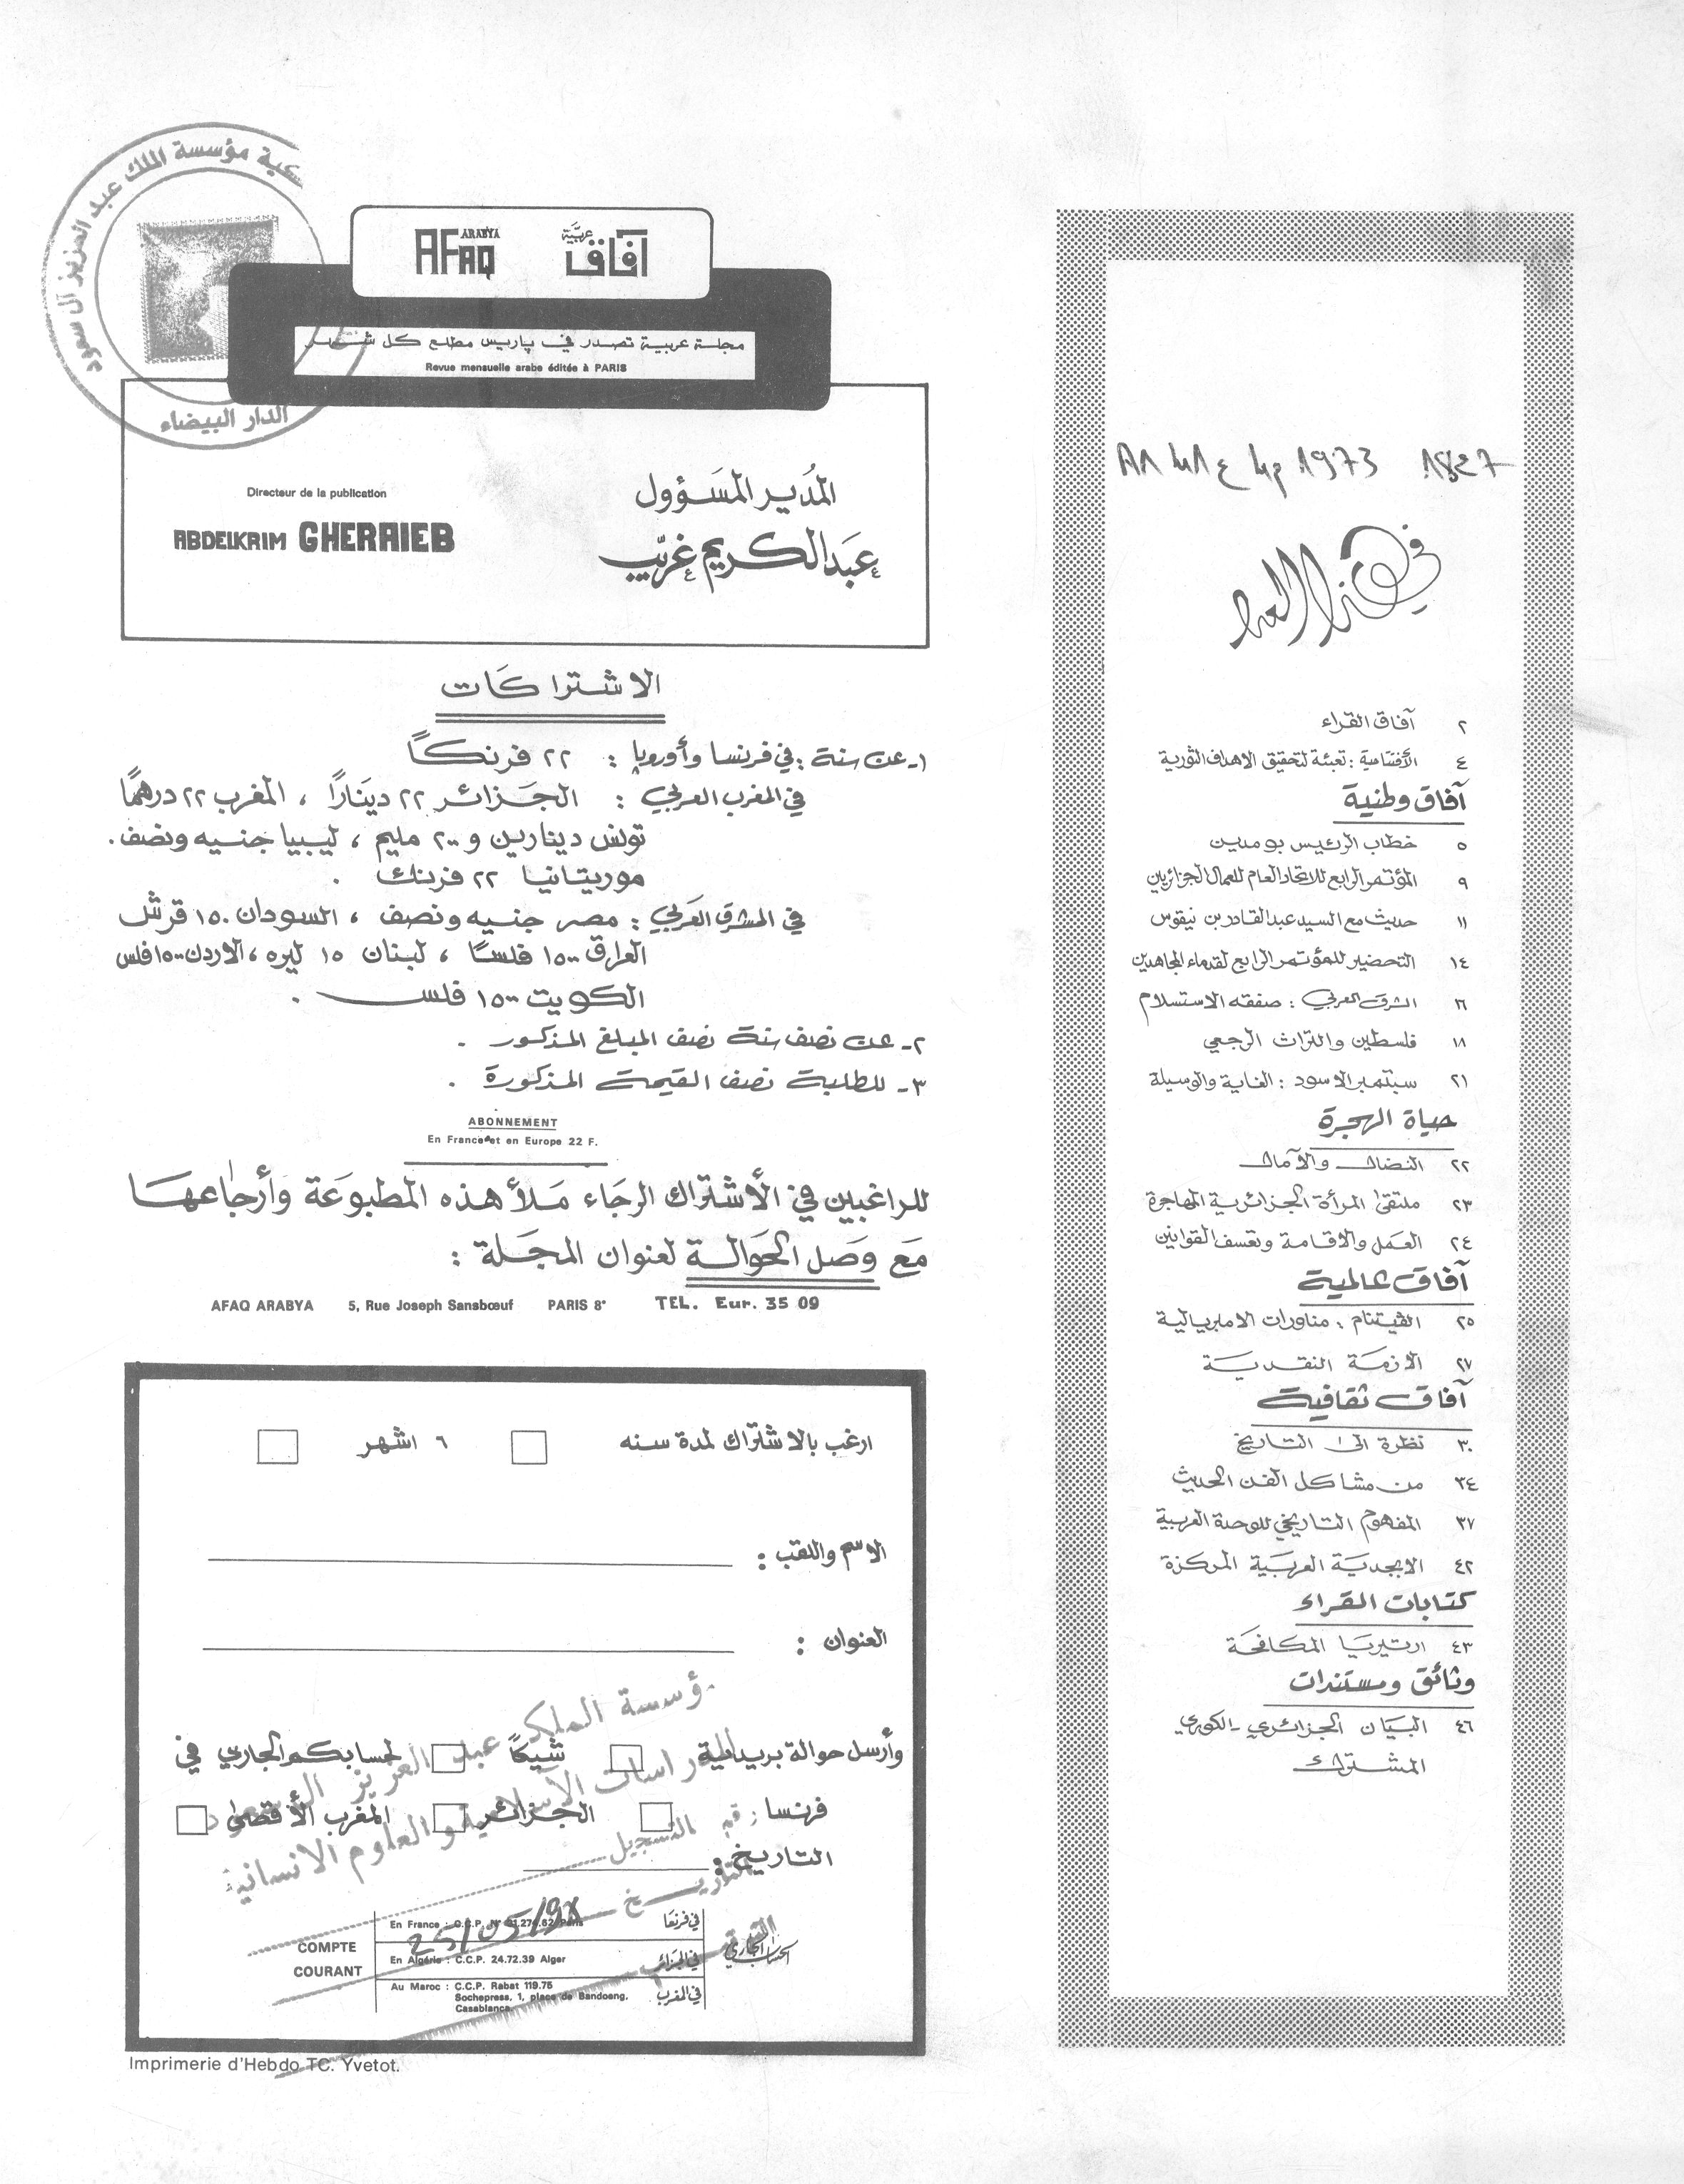 في هذا العدد
٢ آفاق القراء
٤ الأفتتاحية : تعبئة لتحقيق الاهداف الثورية
آفاق وطنية
٥ خطاب الرئيس بومدين
٩ المؤتمر الرابع للاتحاد العام للعمال الجزائريين
١١ حديث مع السيد عبد القادر بن نيقوس
١٤ التحضير للمؤتمر الرابع لقدماء المجاهدين
١٦ الشرق العربي : صفقه الاستسلام
١٨ فلسطين والتراث الرجعي
٢١ سبتمبر الاسود : الغاية والوسيلة
حياة الهجرة
٢٢ النضال والآمال
٢٣ ملتقى المرأة الجزائرية المهاجرة
٢٤ العمل والاقامة وتعسف القوانين
آفاق عالمية
٢٥ الفيتنام : مناورات الامبريالية
٢٧ الازمة النقدية
آفاق ثقافية
٣٠ نظرة الى التاريخ
٣٤ من مشاكل الفن الحديث
٣٧ المفهوم التاريخي للوحدة العربية
٤٢ الابجدية العربية المركزة
كتابات القراء
٤٣ ارتيريا المكافحة
وثائق ومستندات
٤٦ البيان الجزائري - الكوري
المشترك
مؤسسة الملك عبد العزيز آل سعود
الدار البيضاء
AFAQ ARABYA آفاق عربية
مجلة عربية تصدر في پاريس مطلع كل شهر
Revue mensuelle arabe éditée à PARIS
المُدير المَسَؤوول
Directeur de la publication
عَبَد الكريم غريّب
ABDELKRIM GHERAIEB
الاشتراكَات
١- عن سنة : في فرنسا وأوروپا : ٢٢ فرنكاً
في المغرب العربي : الجَزائر ٢٢ دينَاراً ، المغرب ٢٢ درهمًا
تونس دينارين و ٢٠٠ مليم ، ليبيا جنسيه ونصف .
موريتانيا ٢٢ فرنك .
في المشرق العَربي : مصر جنيه ونصف ، السودان ١٥٠ قرش
العراق ١٥٠٠ فلسًا ، لبنان ١٥ ليره ، الاردن ١٥٠٠ فلس
الكويت ١٥٠٠ فلس .
٢- عن نصف سنة نصف المبلغ المذكور .
٣- للطلبة نصف القيمة المذكورة .
ABONNEMENT
En France et en Europe 22 F.
للراغبين في الأشتراك الرجَاء مَلأ هذه المطبوعَة وَأرجاعهَا
مَع وَصل الحَوالة لعنوان المجَلة :
AFAQ ARABYA 5, Rue Joseph Sansbœuf PARIS 8° TEL. Eur. 35 09
ارغب بالاشتراك لمدة سنه ٦ اشهر
الاسم واللقب :
العنوان :
مؤسسة الملك عبد العزيز آل سعود
للدراسات الاسلامية والعلوم الانسانية
وأرسل حوالة بريدية شيكًا لحسابكم الجاري في
فرنسا الجزائر المغرب الأقصى
رقم التسجيل
التاريخ :
التاريخ 25/05/98
الحساب الجاري
COMPTE
COURANT
En France : C.C.P. Paris في فرنسا
En Algérie : C.C.P. 24.72.39 Alger في الجزائر
Au Maroc : C.C.P. Rabat 119.75 في المغرب
Sochepress, 1, place de Bandoeng,
Casablanca
Imprimerie d'Hebdo TC. Yvetot.